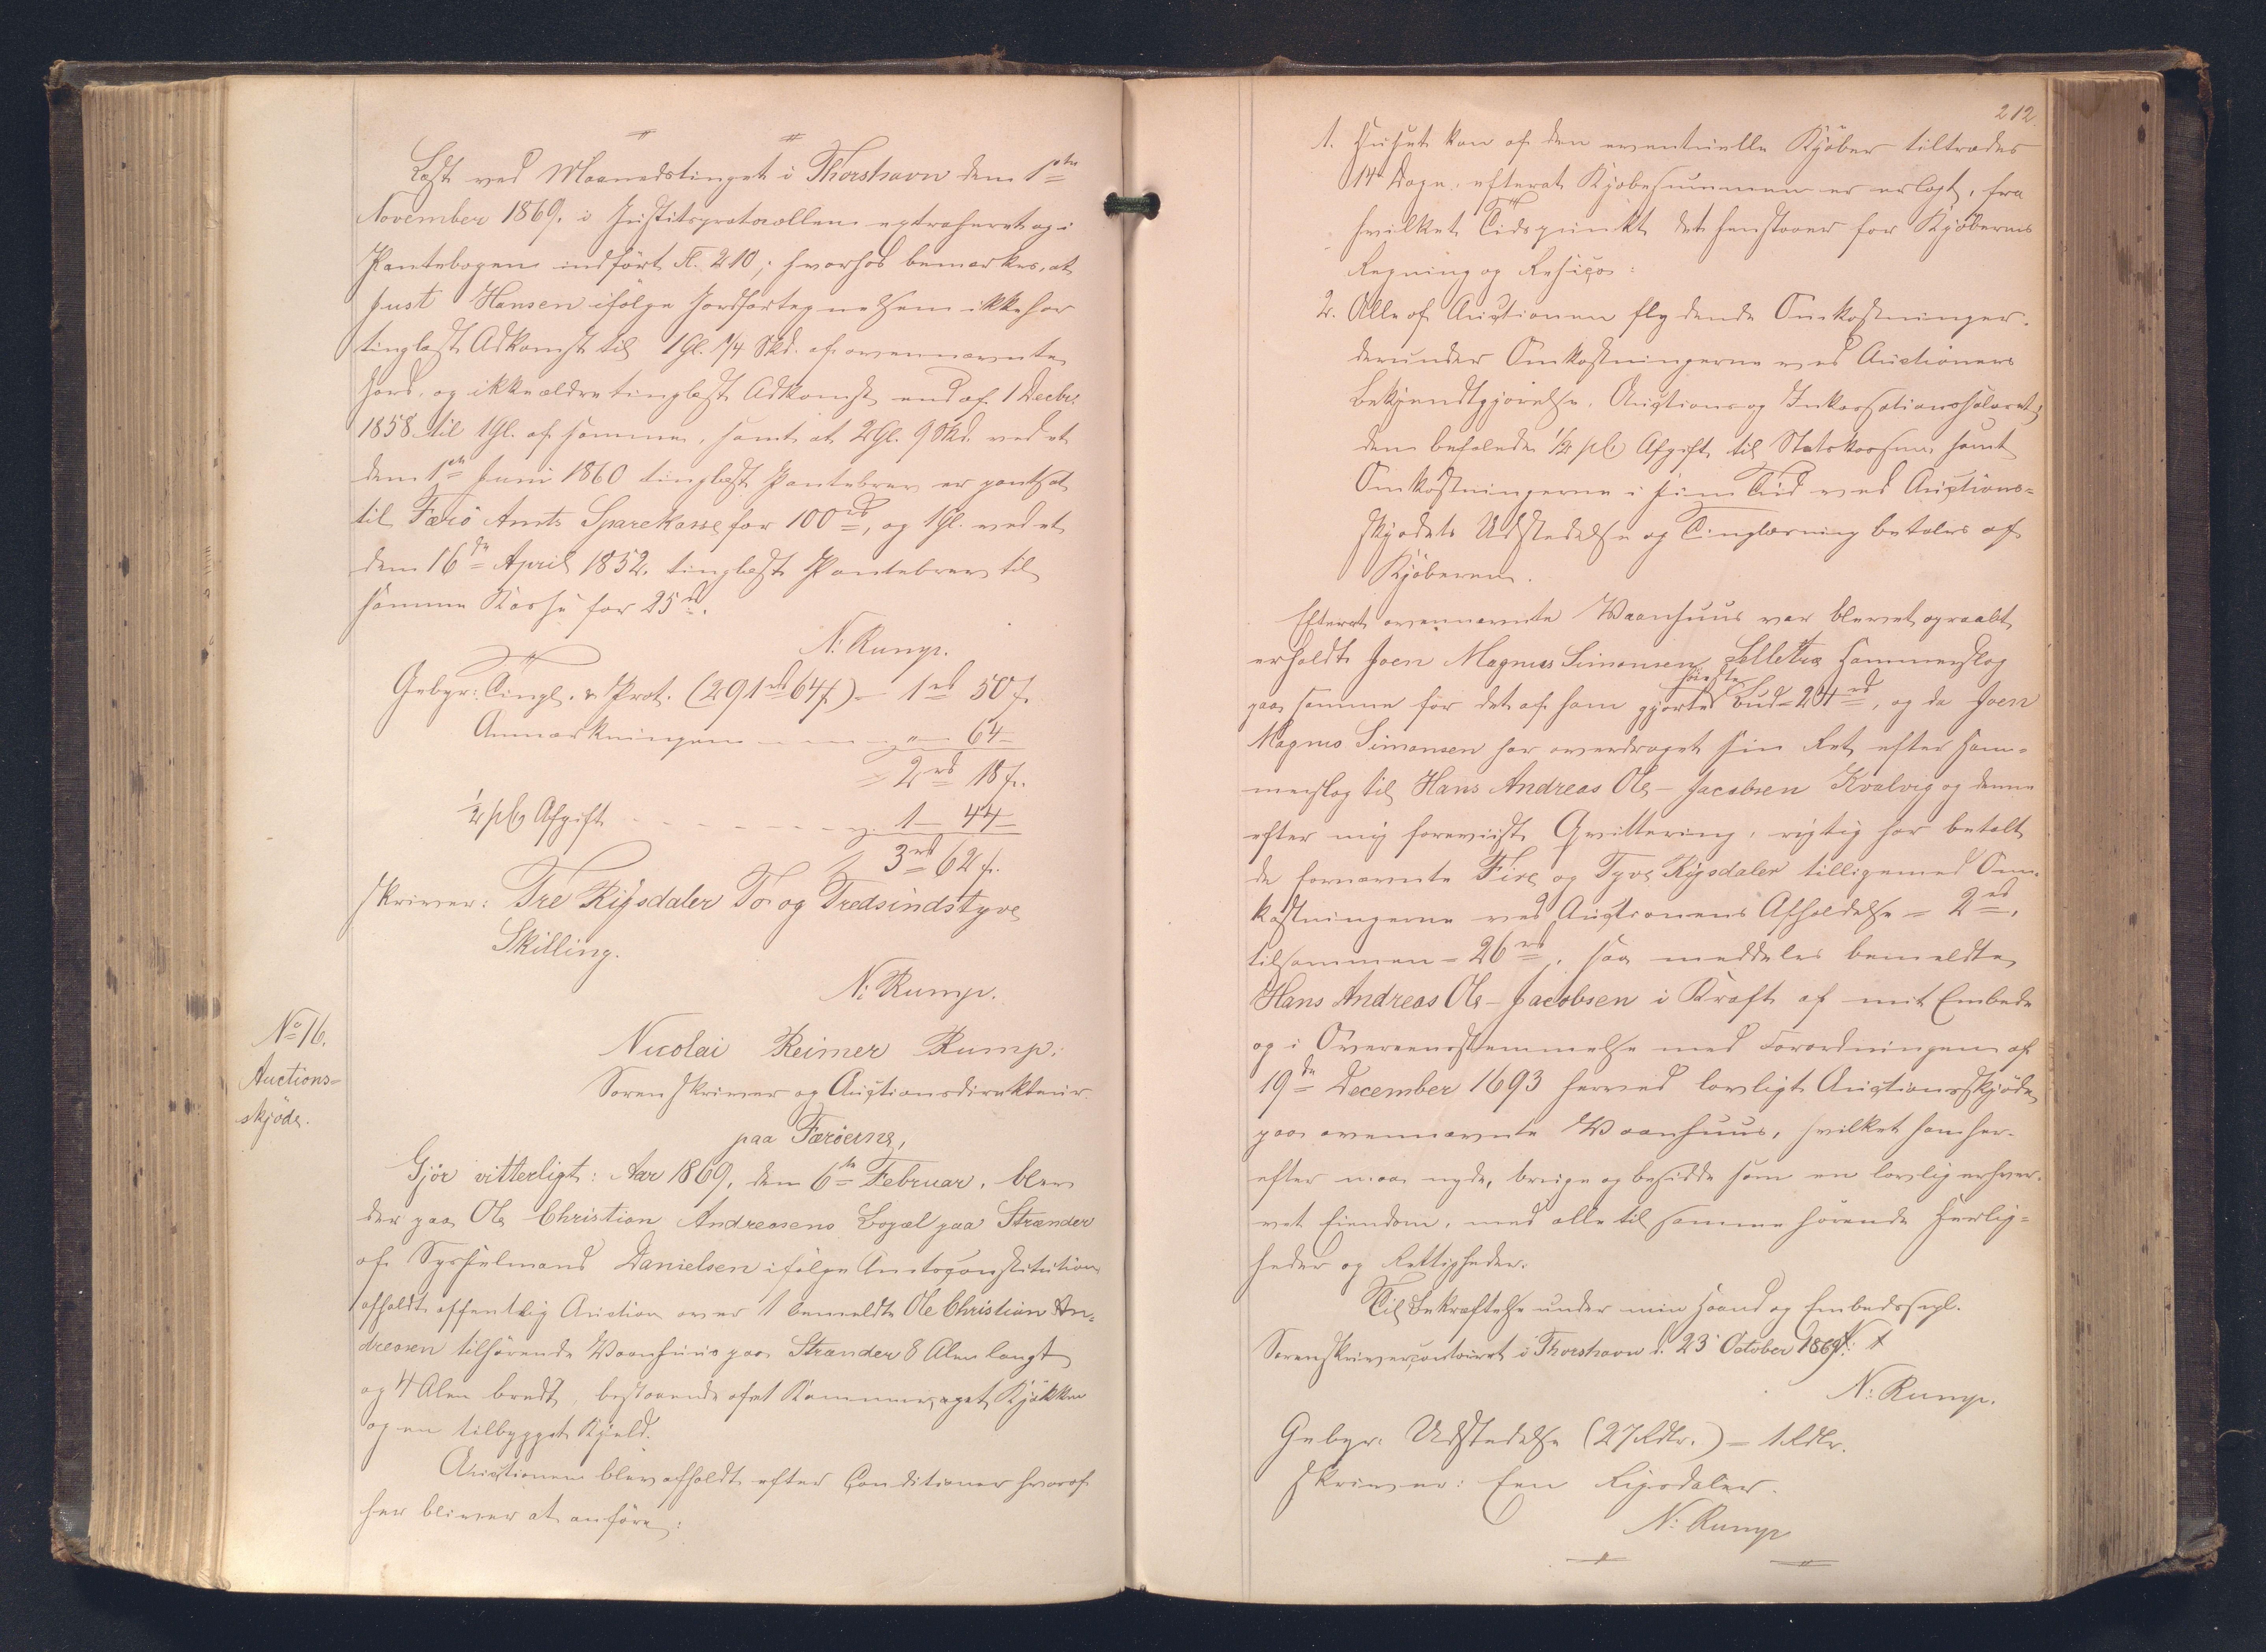 Læst ved Maanedstinget i Thorshavn den 1ste
November 1869, i Justitsprotocollen extraheret og i
Pantebogen indført Fl. 210; hvorhos bemærkes, at
Just Hansen ifølge Jordfortegnelsen ikke har
tinglæst Adkomst til 1 Gl. 1/4 Skd. af ovennævnte
Jord, og ikke ældre tinglæst Adkomst end af 1 Decbr.
1858 til 1 Gl. af samme, samt at 2 Gl. 9 Skd. ved et
den 1ste Juni 1860 tinglæst Pantebrev er pantsat
til Færø Amts Sparekasse for 100 rd, og 1 Gl. ved et
den 16de April 1852 tinglæst Pantebrev til
samme Kasse for 25 rd.
N: Rump.
Gebyr: Tingl. & Prot. (291 rd 64 s) - 1 rd 50 s.
Anmærkningen - - - " - 64 -
2 rd 18 s.
1/2 pCt Afgift - - - - - - 1 - 44 -
3 rd 62 s.
skriver: Tre Rigsdaler To og Tredsindstyve
Skilling.
N: Rump.
No 16.
Auctions-
skjøde.
Nicolai Reimer Rump:
Sorenskriver og Auctionsdirekteur
paa Færøerne,
Gjør vitterligt: Aar 1869, den 6te Februar, blev
der paa Ole Christian Andreasens Bopæl paa Strænder
af Sysselmand Danielsen ifølge Amtsconstitution
afholdt offentlig Auction over 1 bemeldte Ole Christian An-
dreasen tilhørende Vaanhuus paa Strænder 8 Alen langt
og 4 Alen bredt, bestaaende af et Kammer, et Kjøkken
og en tilbygget Kjeld.
Auctionen blev afholdt efter Conditioner hvoraf
her bliver at anføre:
212
1. Huset kan af den eventuelle Kjøber tiltrædes
14 Dage efterat Kjøbesummen er erlagt, fra
hvilket Tidspunkt det henstaaer for Kjøberens
Regning og Resico:
2. Alle af Auctionen flydende Omkostninger,
derunder Omkostningerne ved Auctionens
Bekjendtgjørelse, Auctions og Inkassationssalairet,
den befalede 1/2 pCt Afgift til Statskassen samt
Omkostningerne i sin Tid ved Auctions-
skjødets Udstedelse og Tinglæsning betales af
Kjøberen.
Efterat ovennævnte Vaanhuus var blevet opraabt
erholdt Joen Magnus Simonsen Selletræ Hammerslag
paa samme for det af ham gjorte høieste Bud - 24 rd, og da Joen
Magnus Simonsen har overdraget sin Ret efter Ham-
merslag til Hans Andreas Ole-Jacobsen Kvalvig og denne
efter mig foreviist Qvittering, rigtig har betalt
de fornævnte Fire og Tyve Rigsdaler tilligemed Om-
kostningerne ved Auctionens Afholdelse - 2 rd,
tilsammen - 26 rd, saa meddeles bemeldte
Hans Andreas Ole-Jacobsen i Kraft af mit Embede
og i Overeensstemmelse med Forordningen af
19de December 1693 herved lovligt Auctionsskjøde
paa ovennævnte Vaanhuus, hvilket han her-
efter maa nyde, bruge og besidde som en lovlig erhver-
vet Eiendom, med alle til samme hørende Herlig-
heder og Rettigheder.
Til Bekræftelse under min Haand og Embedssegl.
Sorenskrivercontoiret i Thorshavn d. 23 October 1869.
N: Rump.
Gebyr: Udstedelse (27 Rdlr.) - 1 Rdlr.
skriver: Een Rigsdaler.
N: Rump